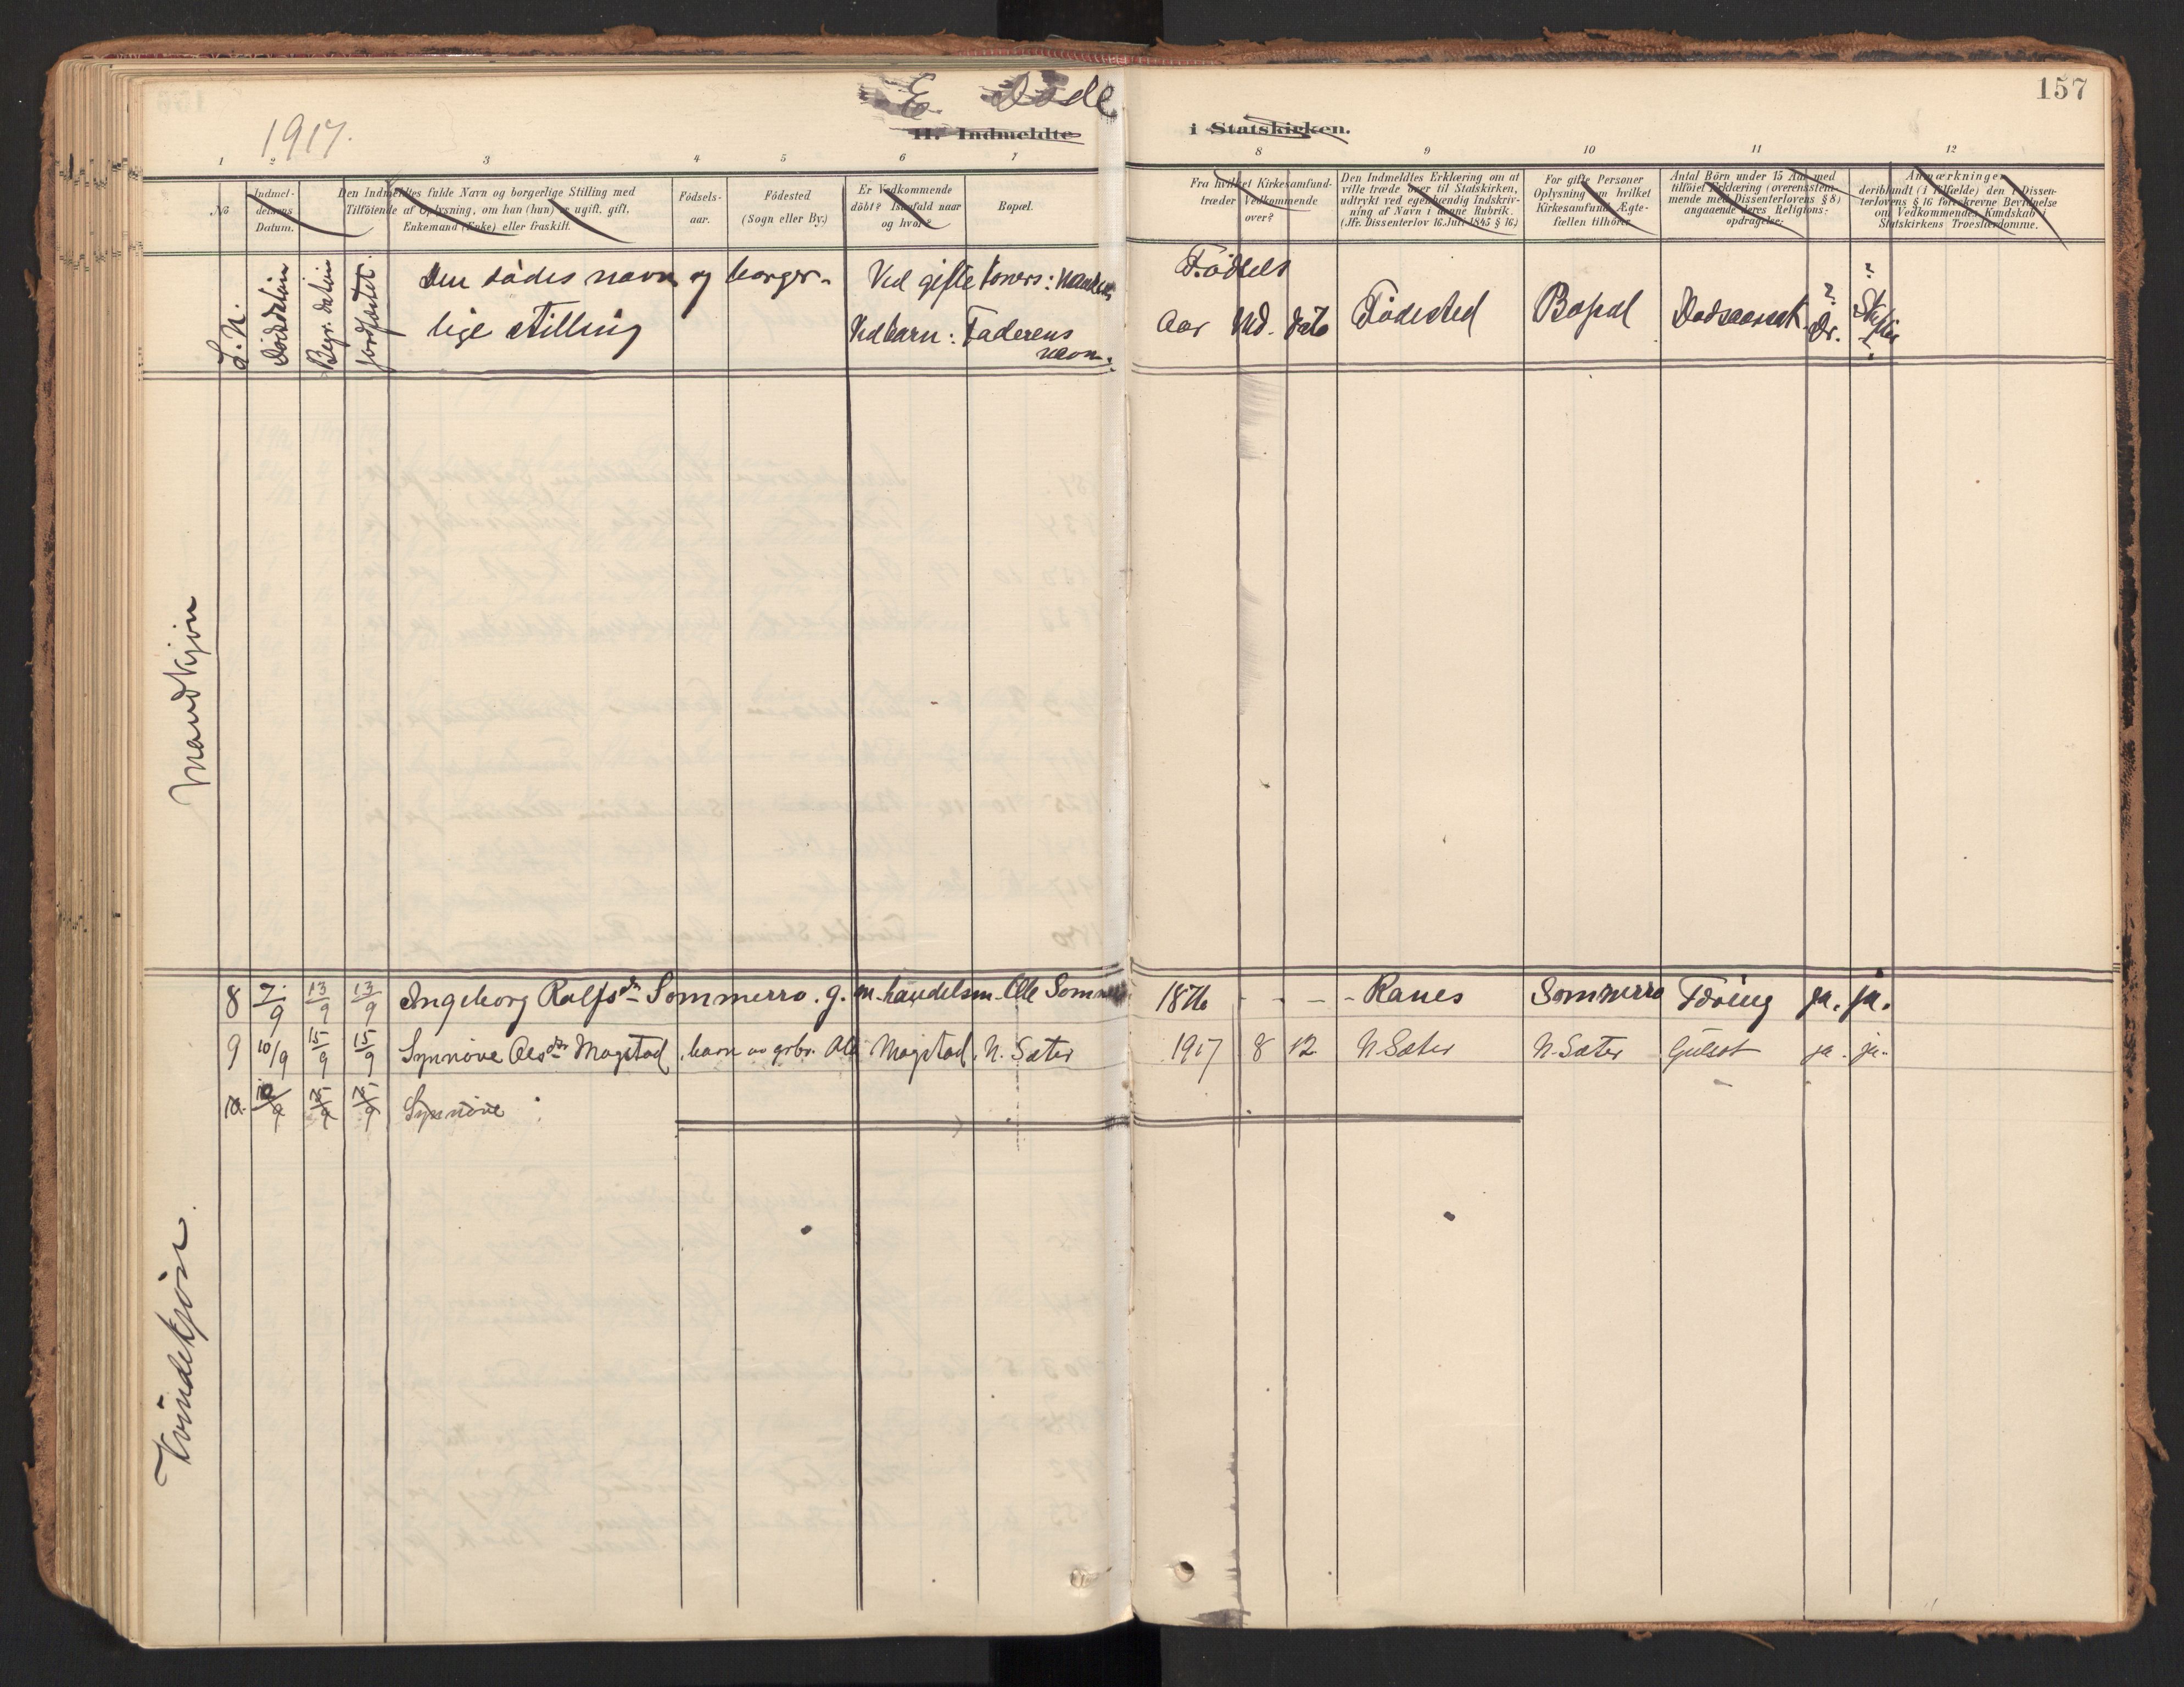 157
1917.
E. Døde
II. Indmeldte i Statskirken.
1 2 3 4 5 6 7 8 9 10 11 12
No
Indmel-
delsens
Datum.
Den Indmeldtes fulde Navn og borgerlige Stilling med
Tilføiende af Oplysning, om han (hun) er ugift, gift,
Enkemand (Enke) eller fraskilt.
Fødsels-
aar.
Fødested
(Sogn eller By.)
Er Vedkommende
döbt? Isaafald naar
og hvor?
Bopæl.
Fra hvilket Kirkesamfund
træder Vedkommende
over?
Den Indmeldtes Erklæring om at
ville træde over til Statskirken,
udtrykt ved egenhændig Indskriv-
ning af Navn i denne Rubrik.
(Jfr. Dissenterlov 16 Juli 1845 § 16.)
For gifte Personer
Oplysning om hvilket
Kirkesamfund Ægte-
fællen tilhörer.
Antal Börn under 15 Aar, med
tilföiet Erklæring (overensstem-
mende med Dissenterlovens § 8)
angaaende deres Religions-
opdragelse.
Anmærkninger,
deriblandt (i Tilfælde) den i Dissen-
terlovens § 16 foreskrevne Bevidnelse
om Vedkommendes Kundskab i
Statskirkens Troeslærdomme.
L. N.
Dødsdatum
Begr. datum
Jordfæstet.
Den dødes navn og borger-
lige stilling
Ved gifte koners: Mandens
Ved barn: Faderens
navn.
Fødsels
Aar Md. Dato
Fødested
Bopæl
Dødsaarsak.
Dr. ?
Skifter ?
Mandkjøn
8 7/9 13/9 13/9 Ingeborg Rolfsdtr Sommerro. g. m. handelsm. Ole Sommerro 1876 - - - - Ranes Sommerro Tæring ja. ja.
9 10/9 15/9 15/9 Synnöve Olesdtr Magstad, barn av grbr. Ole Magstad, N. Sæter 1917 8 12 N. Sæter N. Sæter Gulsot ja. ja.
10. 10/9 15/9 15/9 Synnöve
Kvindekjøn.